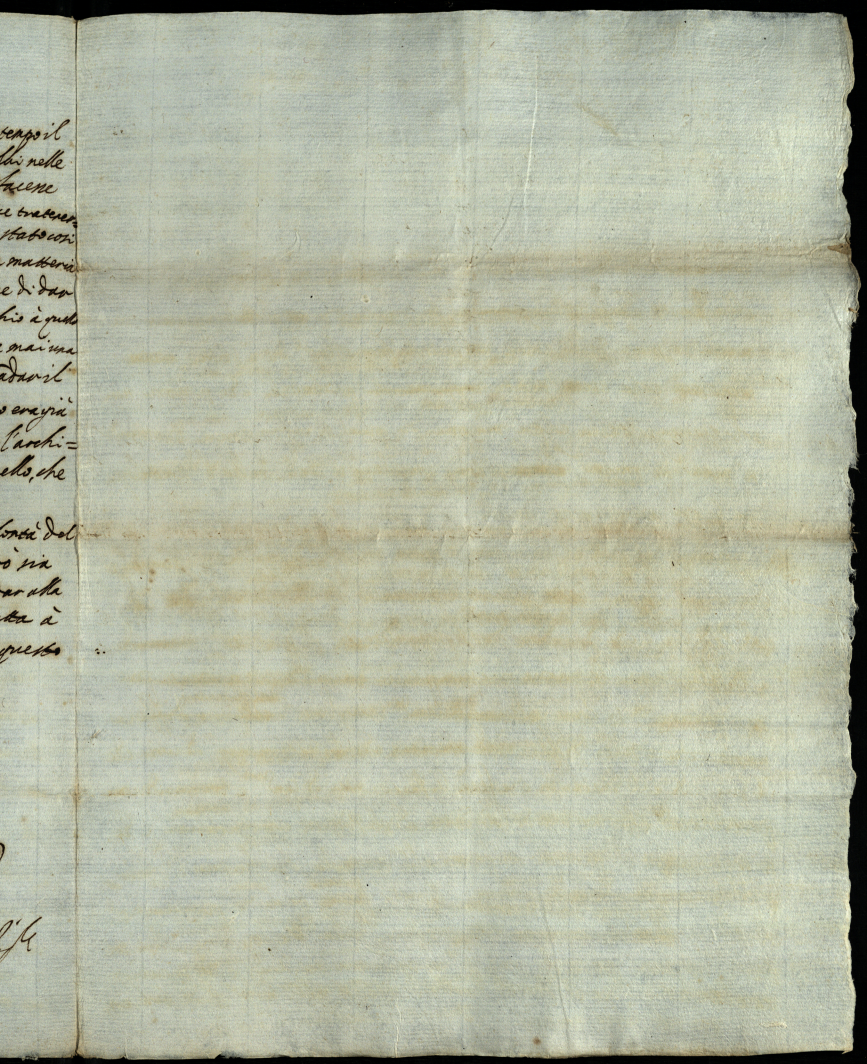 tempo il
lui nelle
facesse
se tratener=
stato così
matteria
e di dar
hio à questo
mai una
à dar il
o era già
l'archi=
ello, che
lontà del
ò sia
rar alla
atta à
questo